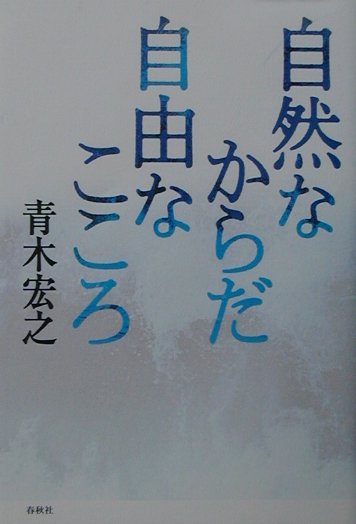 自然な
からだ
自由な
こころ
青木宏之
春秋社